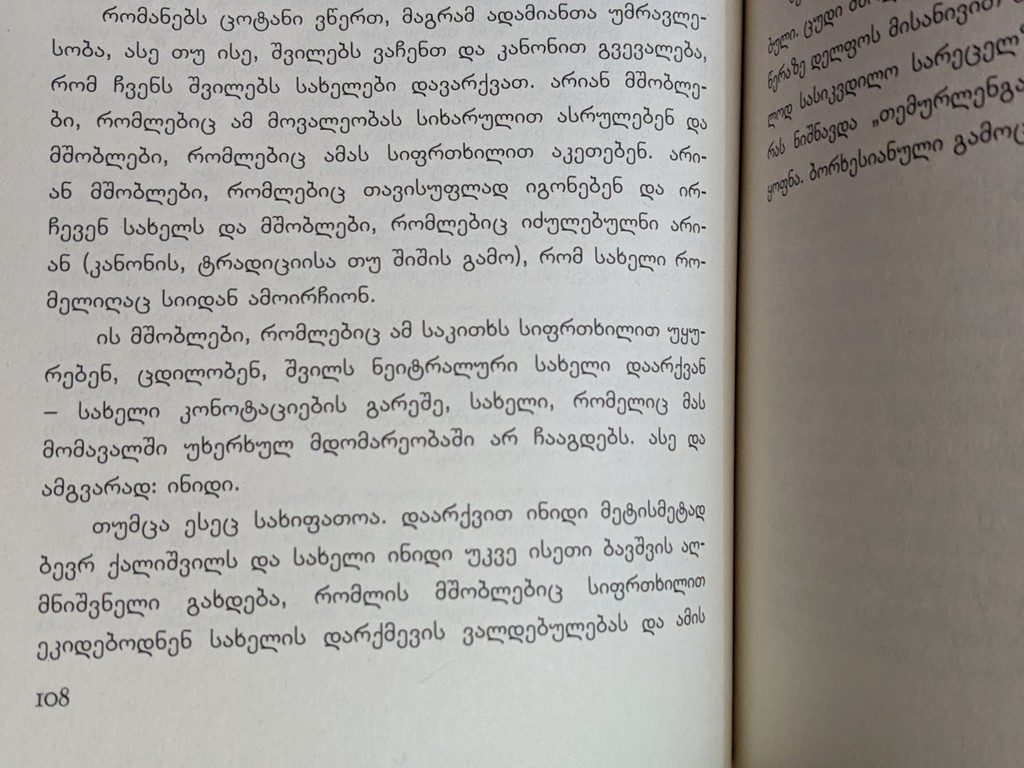 რომანებს ცოტანი ვწერთ, მაგრამ ადამიანთა უმრავლე-
სობა, ასე თუ ისე, შვილებს ვაჩენთ და კანონით გვევალება,
რომ ჩვენს შვილებს სახელები დავარქვათ. არიან მშობლე-
ბი, რომლებიც ამ მოვალეობას სიხარულით ასრულებენ და
მშობლები, რომლებიც ამას სიფრთხილით აკეთებენ. არი-
ან მშობლები, რომლებიც თავისუფლად იგონებენ და ირ-
ჩევენ სახელს და მშობლები, რომლებიც იძულებულნი არი-
ან (კანონის, ტრადიციისა თუ შიშის გამო), რომ სახელი რო-
მელიღაც სიიდან ამოირჩიონ.
ის მშობლები, რომლებიც ამ საკითხს სიფრთხილით უყუ-
რებენ, ცდილობენ, შვილს ნეიტრალური სახელი დაარქვან
– სახელი კონოტაციების გარეშე, სახელი, რომელიც მას
მომავალში უხერხულ მდომარეობაში არ ჩააგდებს. ასე და
ამგვარად: ინიდი.
თუმცა ესეც სახიფათოა. დაარქვით ინიდი მეტისმეტად
ბევრ ქალიშვილს და სახელი ინიდი უკვე ისეთი ბავშვის აღ-
მნიშვნელი გახდება, რომლის მშობლებიც სიფრთხილით
ეკიდებოდნენ სახელის დარქმევის ვალდებულებას და ამის
108
ბული. ცუდი
წერაზე დელფოს მისანივით
ლოდ სასიკვდილო სარეცელ
რას ნიშნავდა „თემურლენგა
ყოფნა. ბორხესიანული გამოც